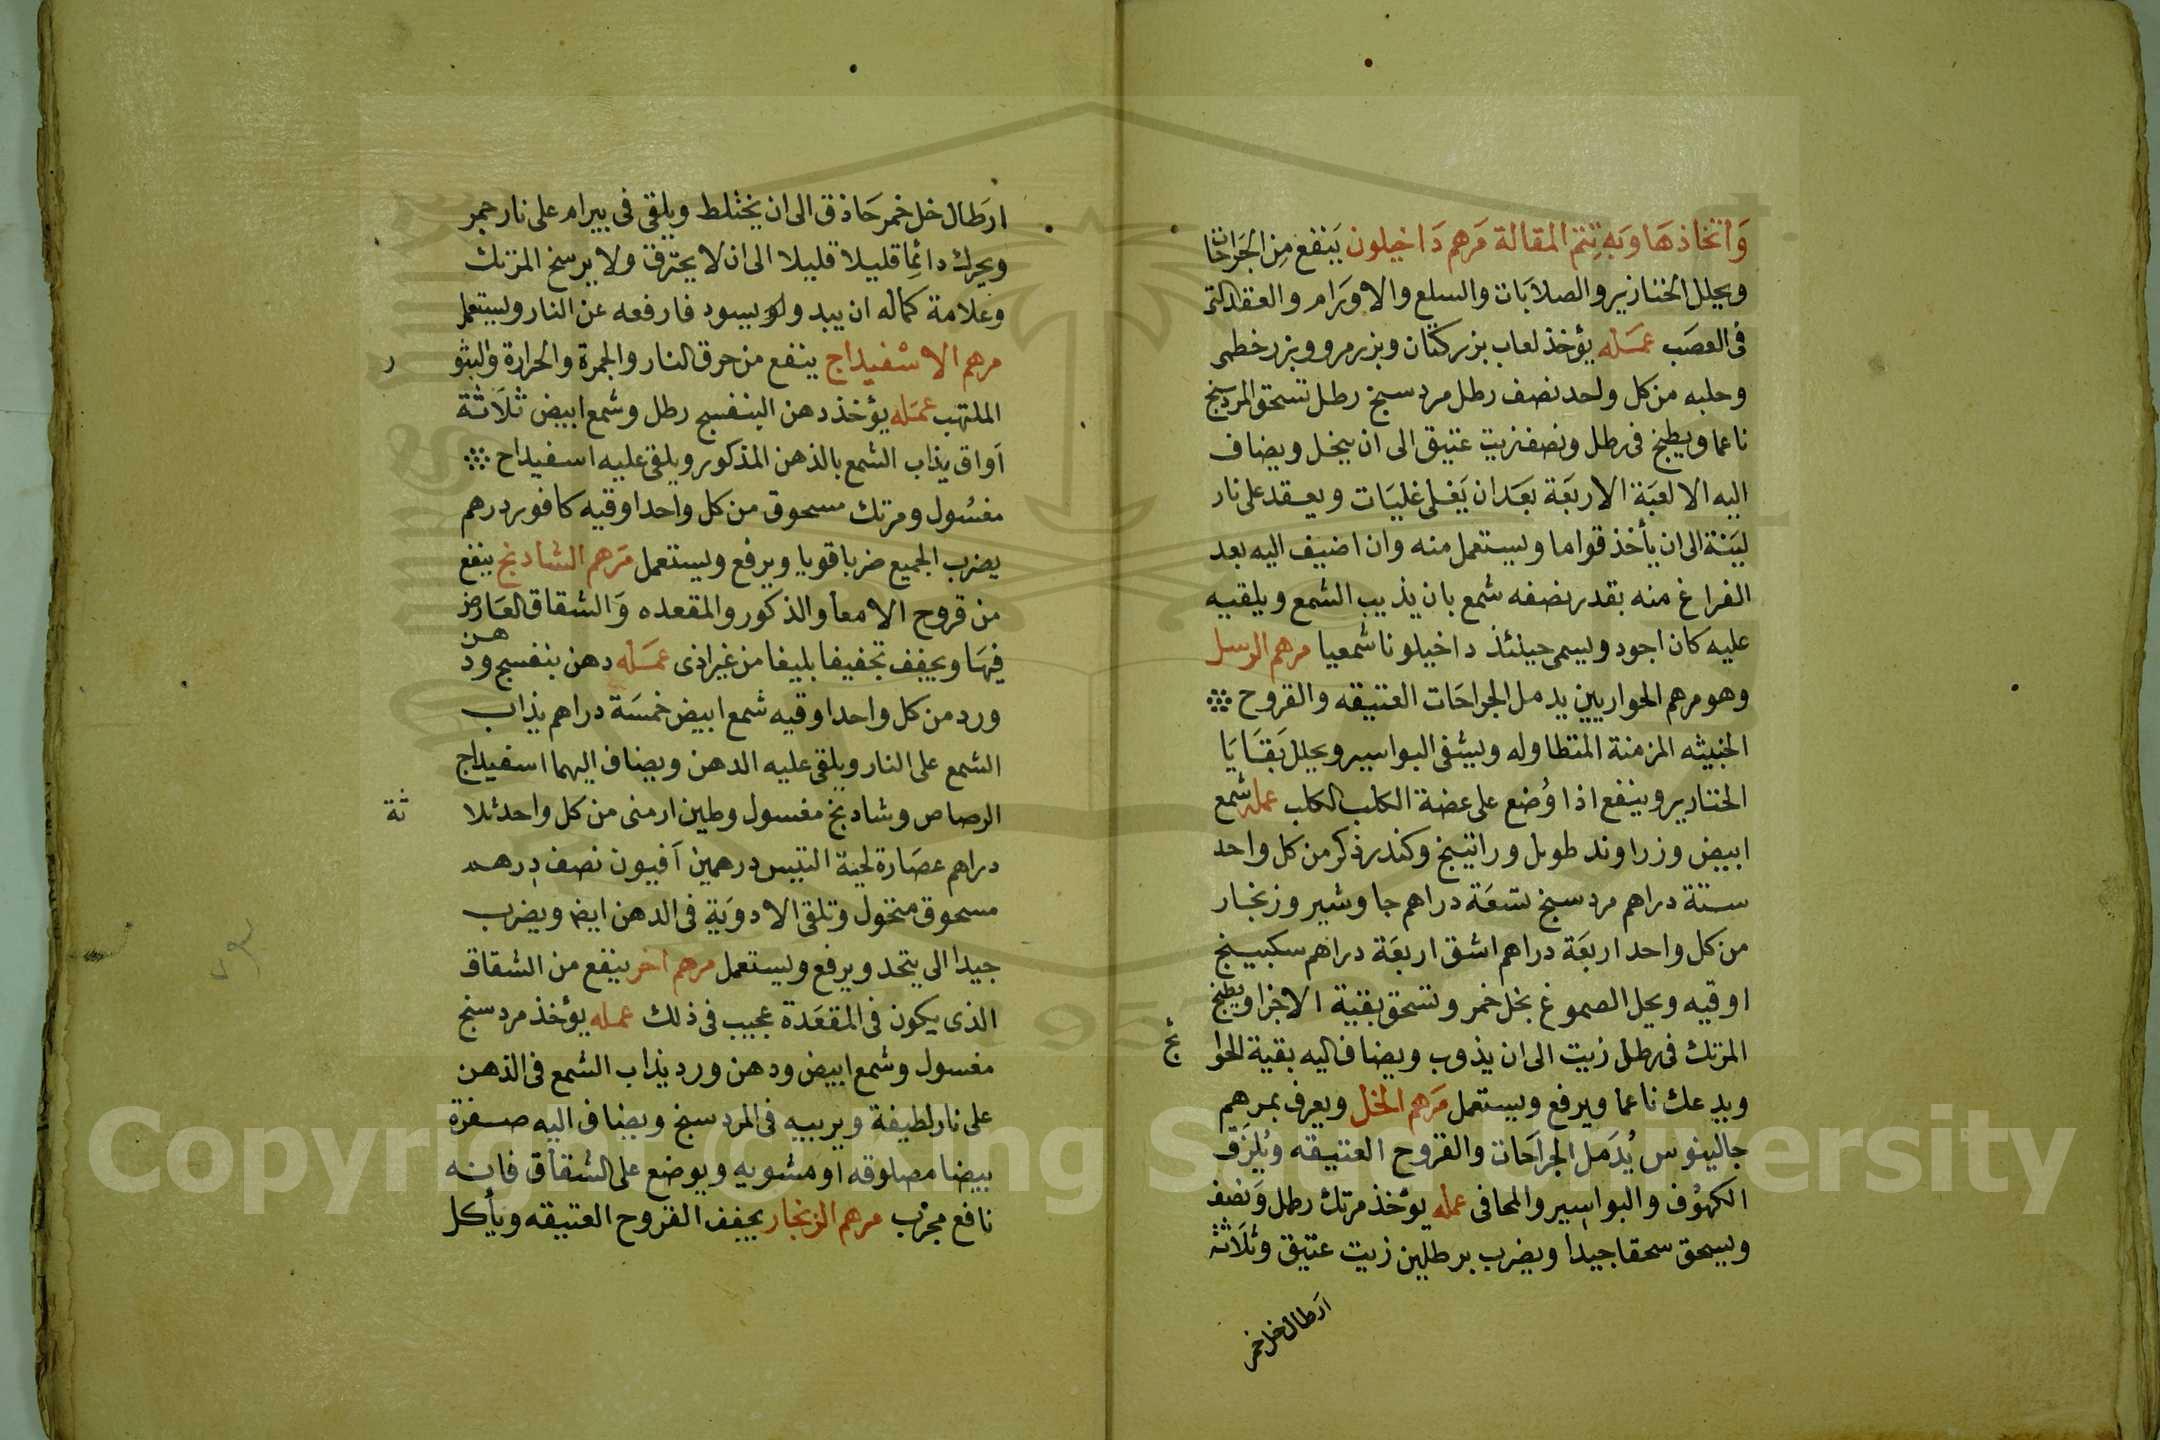 وَاتخاذهَا وَبه تتم المقالة مَرهم دَاخيلون يَنفع مِن الجَراحات
ويحلل الخنازير والصلابَات والسلع والاورَام والعقد التى
فى العصَب عمَله يؤخذ لعاب بزر كتان وبزر مرو وبزر خطمى
وحلبه من كل واحد نصف رطل مردسنج رطل تسحق المردسنج
ناعما ويطبخ فى رطل ونصف زيت عتيق الى ان ينحل ويضاف
اليه الالعبَة الاربعَة بعَد ان يَغلى غليَات ويعقد على نار
ليَنة الى ان يأخذ قواما ويستعمل منه وان اضيف اليه بعد
الفراغ منه بقدر نصفه شمع بان يذيب الشمع ويلقيه
عليه كان اجود ويسمى حينئذ داخيلونا شمعيا مرهم الرسل
وهو مرهم الحواريين يدمل الجراحَات العتيقه والقروح
الخبيثه المزمنة المتطاوله ويشفى البواسير ويحلل بَقَايَا
الخنازير وينفع اذا وُضع على عضة الكلب الكلب عمله شمع
ابيض وزراوند طويل وراتينج وكندر ذكر من كل واحد
ستة دراهم مردسنج تسعَة دراهم جاوشير وزنجار
من كل واحد اربعَة دراهم اشق اربعَة دراهم سكبينج
اوقيه ويحل الصموغ بخل خمر وتسحق بقية الاجزا ويطبخ
المرتك فى رطل زيت الى ان يذوب ويضاف اليه بقية الحوا
يج
ويدعك ناعما ويرفع ويستعمل مَرهم الخل ويعرف بمرهم
جالينوس يُدَمل الجراحَات والقروح العتيقه ويُلزَق
الكهوُف والبواسير والمحافى عمله يؤخذ مرتك رطل وَنصف
ويسحق سحقا جيدا ويضرب برطلين زيت عتيق وثلَاثة
ارَطال خل خمر
ارَطال خل خمر حَاذق الى ان يختلط ويلقى فى بيرام على نار جمر
ويحرك دائِما قليلا قليلا الى ان لا يحترق ولا يرسخ المرتك
وعلامة كماله ان يبدو لو يسود فارفعه عن النار ويستعمل
مرهم الاسفيداج ينفع من حرق النار والجمرة والحرارة والبثو
ر
الملتهب عمَله يؤخذ دهن البنفسج رطل وشمع ابيض ثلَاثَة
اَواق يذاب الشمع بالذهن المذكور ويلقى عليه اسفيداح
مغسُول ومرتك مسحوق من كل واحد اوقيه كافور درهم
يضرب الجميع ضربا قويا ويرفع ويستعمل مَرهم الشادنج ينفع
من قروح الامعأ والذكور والمقعده وَالشقاق العَارض
فيهَا ويجفف تجفيفا بليغا من غير اذى عمَله دهن بنفسج ودهن
ورد من كل واحد اوقيه شمع ابيض خمسَة دراهم يذاب
الشمع على النار ويلقى عليه الدهن ويضاف اليهما اسفيداج
الرصاص وشادنج مغسول وطين ارمنى من كل واحد ثلا
ثة
دراهم عصَارة لحية التيس درهمين اَفيون نصف درهم
مسحوق منخول وتلقى الادوَية فى الدهن ايضا ويضرب
جيدا الى يتحد ويرفع ويستعمل مرهم اخر ينفع من الشقاق
الذى يكون فى المقعَدة عجيب فى ذلك عمله يؤخذ مردسنج
مغسول وشمع ابيض ودهن ورد يذاب الشمع فى الذهن
على نار لطيفة ويربيه فى المردسنج ويضاف اليه صفرة
بيضا مصلوقه او مشويه ويوضع على الشقأق فانه
نافع مجرب مرهم الزنجار يجفف القروح العتيقه ويأكل
Copyright © King Saud University
1957